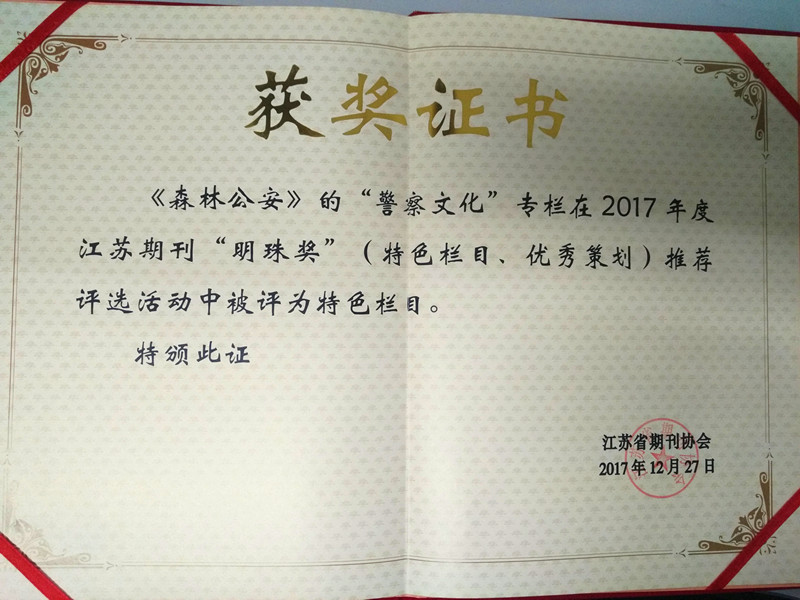 获奖证书
《森林公安》的“警察文化”专栏在2017年度
江苏期刊“明珠奖”（特色栏目、优秀策划）推荐
评选活动中被评为特色栏目。
特颁此证
江苏省期刊协会
2017年12月27日